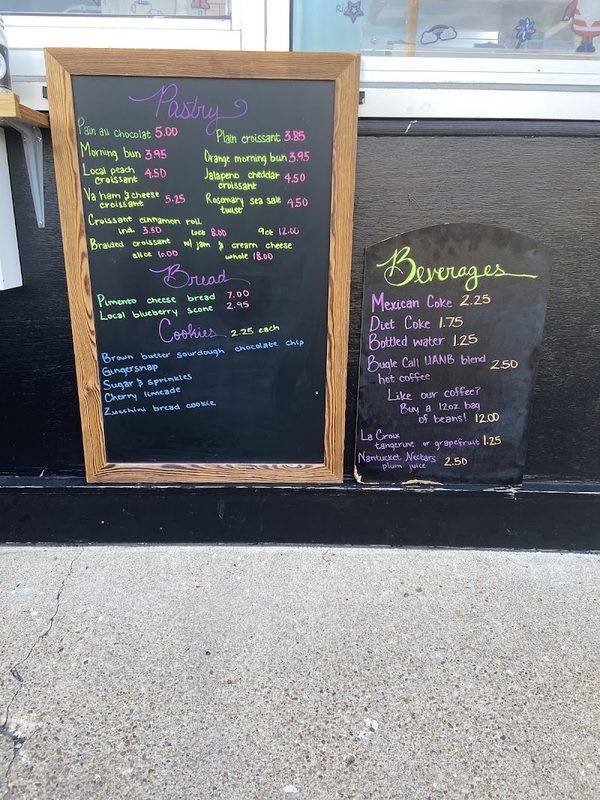 Pastry
Pain au chocolat 5.00
Plain croissant 3.85
Morning bun 3.95
Orange morning bun 3.95
Local peach
croissant 4.50
Jalapeno cheddar
croissant 4.50
Va ham & cheese
croissant 5.25
Rosemary sea salt
twist 4.50
Croissant cinnamon roll
ind. 3.50 6ct 8.00 9ct 12.00
Braided croissant w/ jam & cream cheese
slice 6.00 whole 18.00
Bread
Pimento cheese bread 7.00
Local blueberry scone 2.95
Cookies 2.25 each
Brown butter sourdough chocolate chip
Gingersnap
Sugar & sprinkles
Cherry limeade
Zucchini bread cookie
Beverages
Mexican Coke 2.25
Diet Coke 1.75
Bottled water 1.25
Bugle Call UANB blend 2.50
hot coffee
Like our coffee?
Buy a 12oz bag
of beans! 12.00
La Croix
tangerine or grapefruit 1.25
Nantucket Nectars
plum juice 2.50